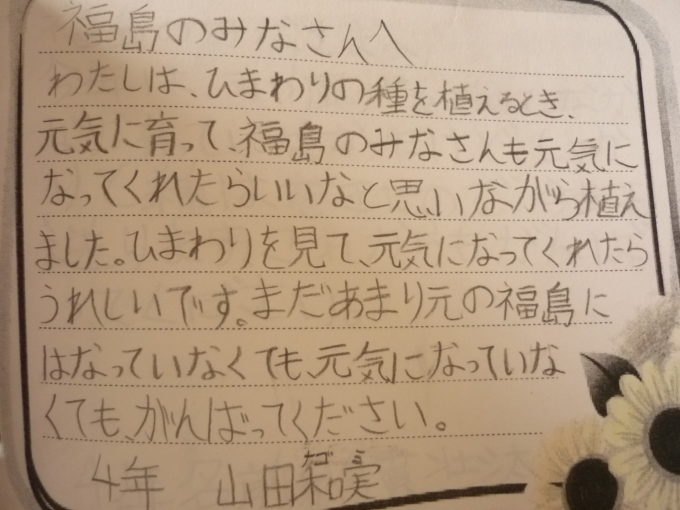 福島のみなさんへ
わたしは、ひまわりの種を植えるとき、
元気に育って、福島のみなさんも元気に
なってくれたらいいなと思いながら植え
ました。ひまわりを見て、元気になってくれたら
うれしいです。まだあまり元の福島に
はなっていなくても、元気になっていな
くても、がんばってください。
4年 山田和実